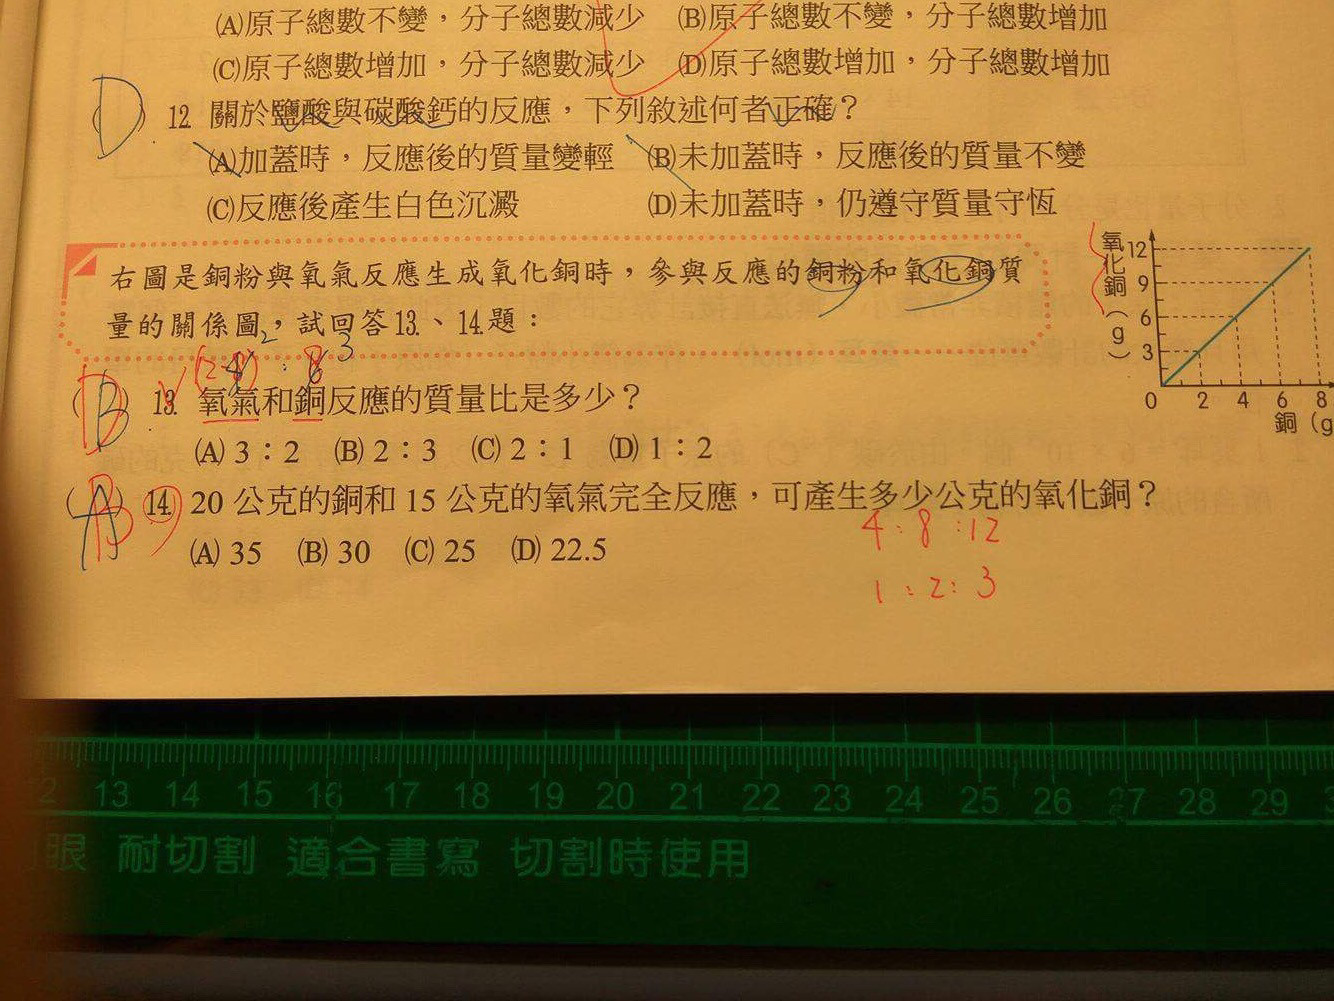 (A)原子總數不變，分子總數減少 (B)原子總數不變，分子總數增加
(C)原子總數增加，分子總數減少 (D)原子總數增加，分子總數增加
(D) 12. 關於鹽酸與碳酸鈣的反應，下列敘述何者正確？
(A)加蓋時，反應後的質量變輕 (B)未加蓋時，反應後的質量不變
(C)反應後產生白色沉澱 (D)未加蓋時，仍遵守質量守恆
右圖是銅粉與氧氣反應生成氧化銅時，參與反應的銅粉和氧化銅質
量的關係圖，試回答13.、14.題：
氧化銅(g)
12
9
6
3
0 2 4 6 8
銅(g
13. 氧氣和銅反應的質量比是多少？
(A) 3：2 (B) 2：3 (C) 2：1 (D) 1：2
14. 20 公克的銅和 15 公克的氧氣完全反應，可產生多少公克的氧化銅？
4:8:12
(A) 35 (B) 30 (C) 25 (D) 22.5
1:2:3
13 14 15 16 17 18 19 20 21 22 23 24 25 26 27 28 29
眼 耐切割 適合書寫 切割時使用